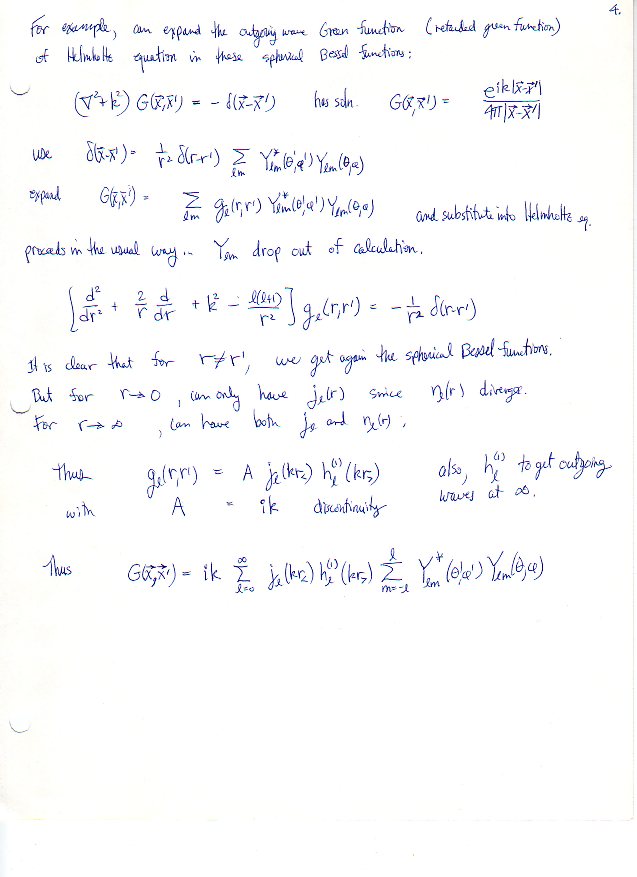 4.
For example, can expand the outgoing wave Green function (retarded green function)
of Helmholtz equation in these spherical Bessel functions:
(∇²+k²) G(x⃗,x⃗') = - δ(x⃗-x⃗') has soln. G(x⃗,x⃗') = e^{ik|x⃗-x⃗'|} / 4π|x⃗-x⃗'|
use δ(x⃗-x⃗') = 1/r² δ(r-r') Σ_{lm} Y*_{lm}(θ',φ') Y_{lm}(θ,φ)
expand G(x⃗,x⃗') = Σ_{lm} g_l(r,r') Y*_{lm}(θ',φ') Y_{lm}(θ,φ) and substitute into Helmholtz eq.
proceeds in the usual way... Y_{lm} drop out of calculation.
[ d²/dr² + 2/r d/dr + k² - l(l+1)/r² ] g_l(r,r') = - 1/r² δ(r-r')
It is clear that for r≠r', we get again the spherical Bessel functions.
But for r→0, can only have j_l(r) since n_l(r) diverge.
For r→∞, can have both j_l and n_l(r);
Thus g_l(r,r') = A j_l(kr_<) h_l^{(1)}(kr_>) also, h_l^{(1)} to get outgoing
waves at ∞.
with A = ik discontinuity
Thus G(x⃗,x⃗') = ik Σ_{l=0}^{∞} j_l(kr_<) h_l^{(1)}(kr_>) Σ_{m=-l}^{l} Y*_{lm}(θ',φ') Y_{lm}(θ,φ)